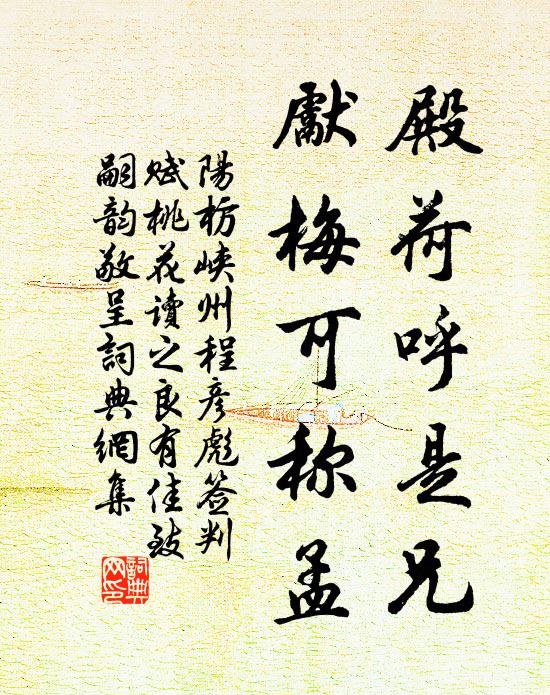 殿荷呼是兄
獻梅可称孟
陽枋峽州程彦彪签判
赋桃花讀之良有佳致
嗣韵敬呈詞典網集
詞典
网印